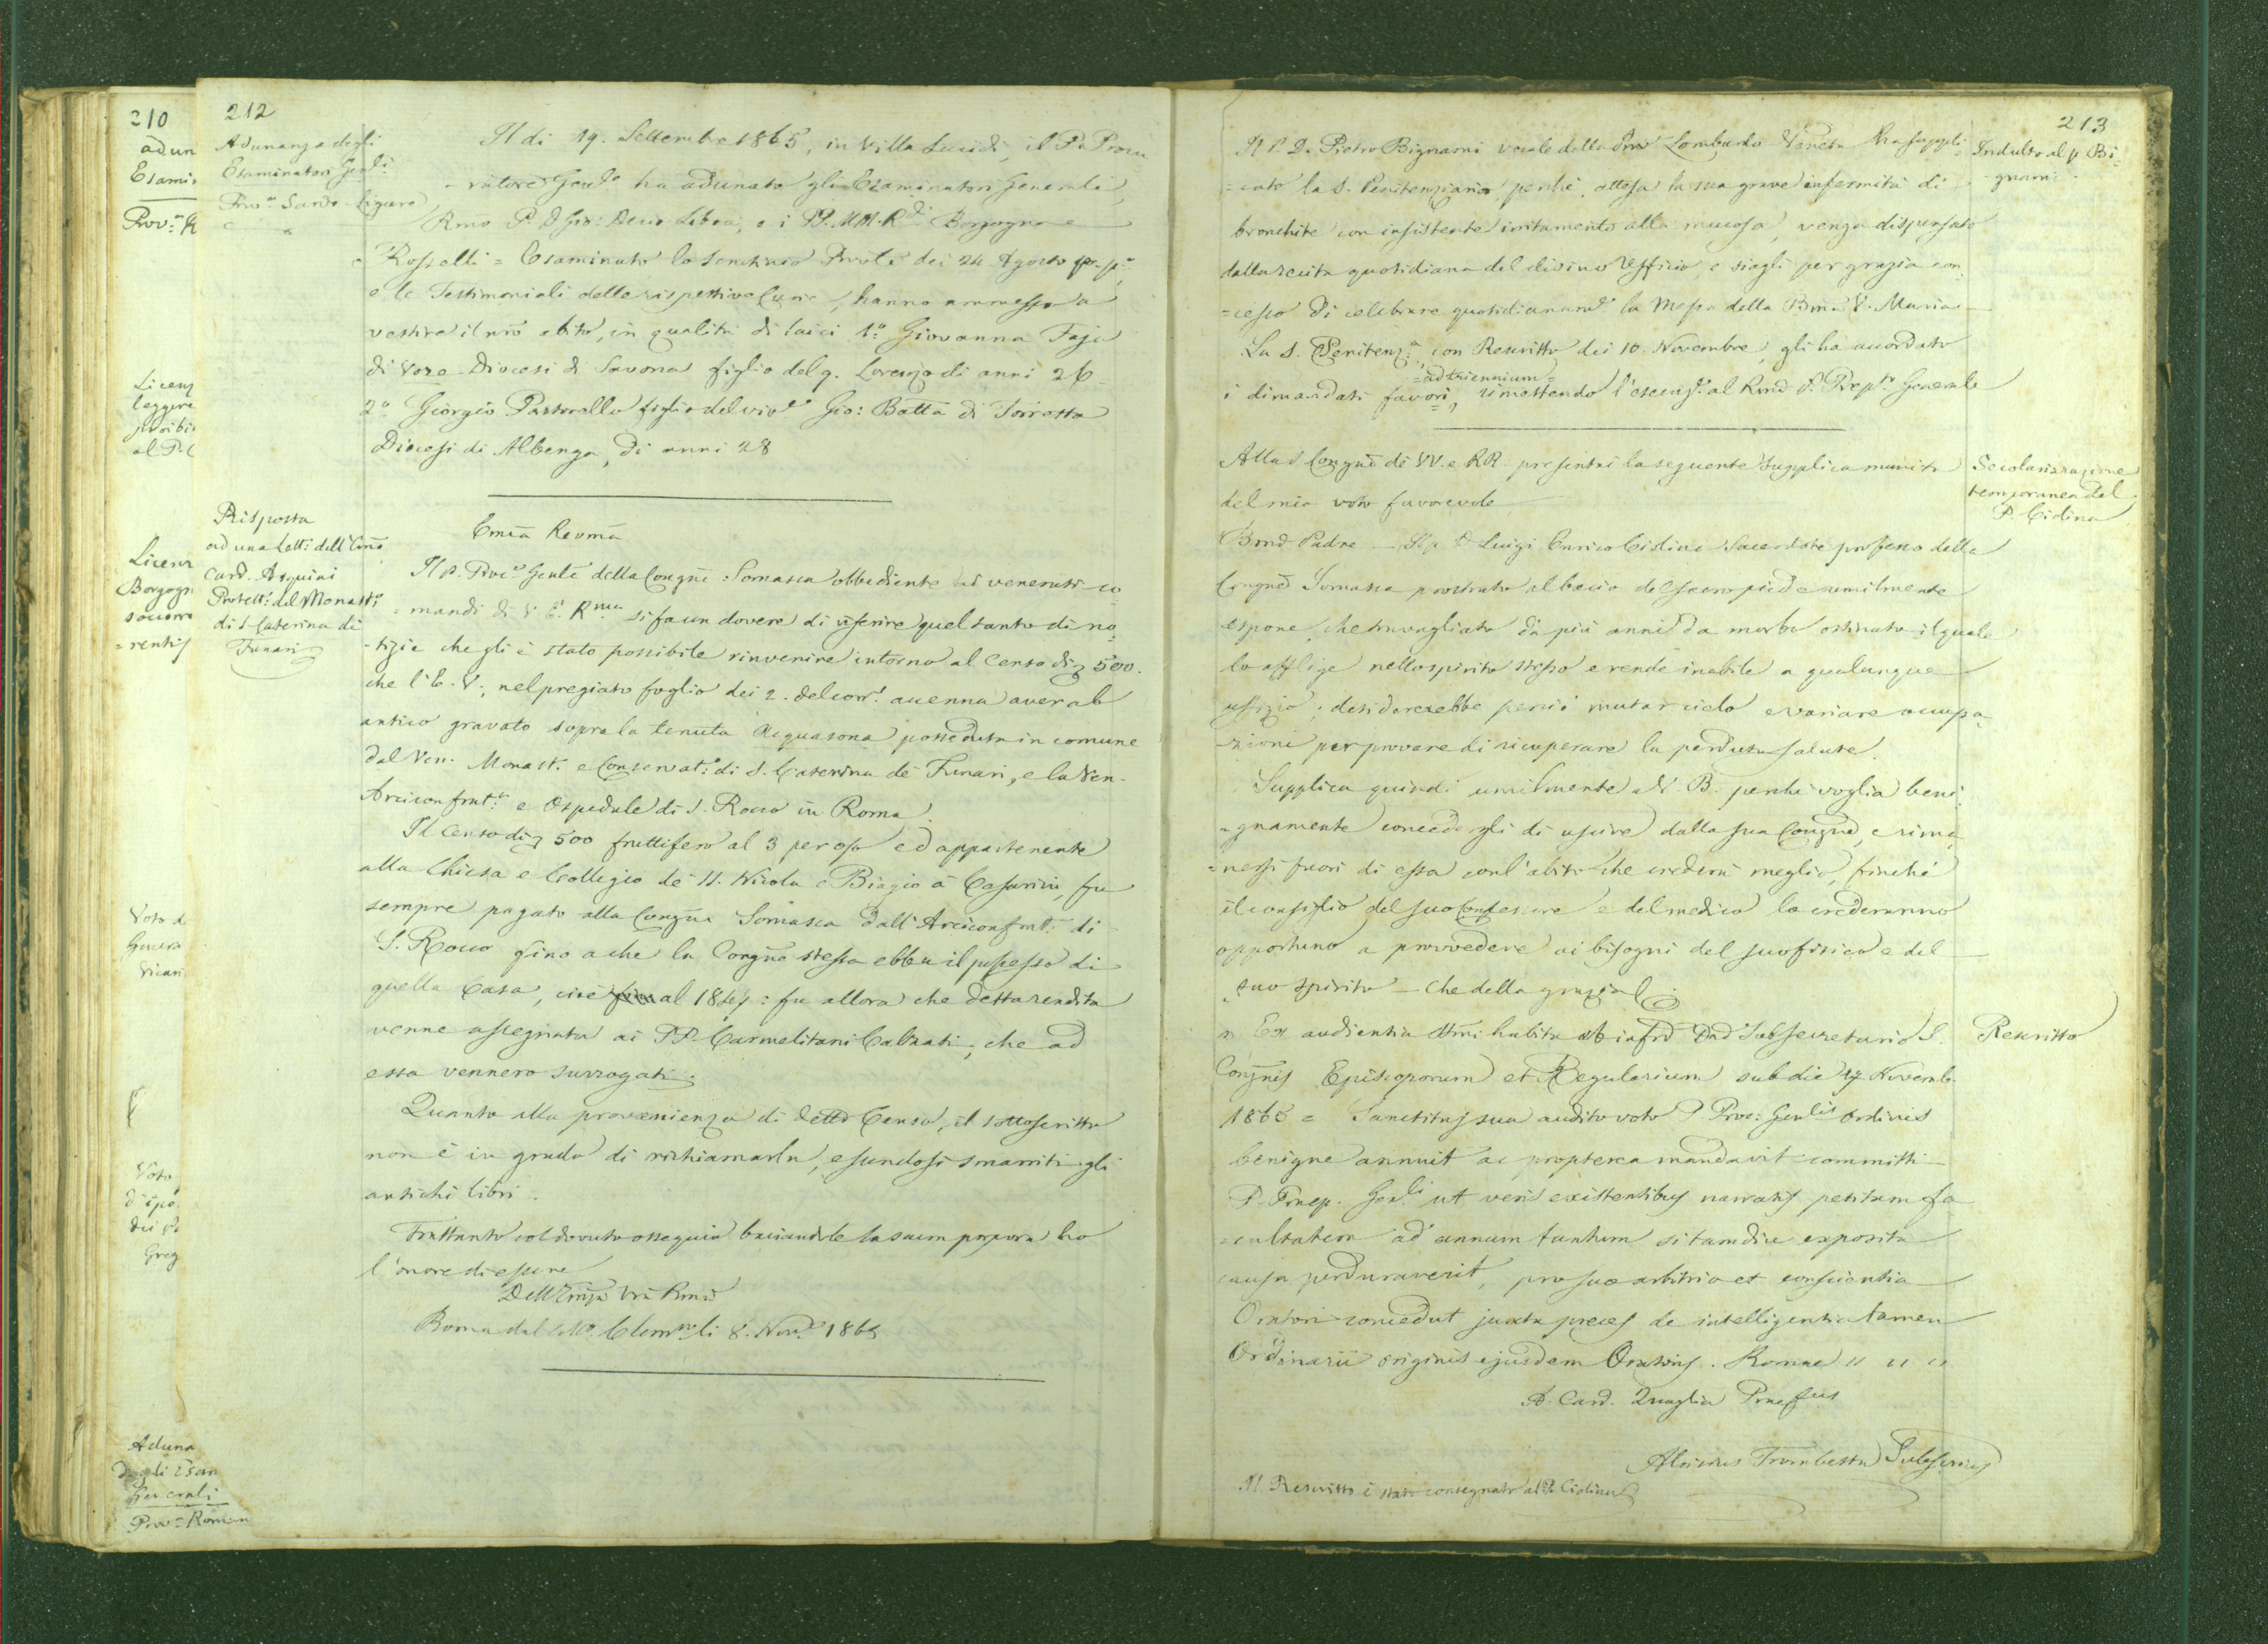 210
adun
Esami
Prov.ª R
Licenz
leggere
proibi
al P. C
Licenz
Borgogn
soccorre
=rentis
Voto d
Genera
Vicari
Voto
d'ipo
dei
Greg
Aduna
degli Esam
Generali
Prov.ª Roman
212
Adunanza degli
Esaminatori Gen.li
Prov.ª Sardo-Ligure
Il dì 19. Settembre 1865, in Villa Lucidi, il P. Procu
-ratore Gen.le ha adunato gli Esaminatori Generali,
Rmo P. D. Gio: Decio Libois, e i PP. MM. R.di Borgogno e
Rosselli = Esaminato lo scrutinio Prov.le dei 24 Agosto pr. p.º
e le Testimoniali delle rispettive Curie, hanno ammesso a
vestire il nrō abito, in qualità di laici 1.º Giovanni Faja
di Voze Diocesi di Savona figlio del q. Lorenzo di anni 26
2.º Giorgio Pastorello figlio del viv.e Gio: Batta di Toirasta
Diocesi di Albenga, di anni 28
Risposta
ad una Lett.ª dell'Emō
Card. Asquini
Protett.e del Monast.º
di S. Caterina di
Funari
Emza Revma
Il P. Proc.e Genle della Congne Somasca obbediente ai venerati co
=mandi di V. E. R.ma si fa un dovere di riferire quel tanto di no
-tizie che gli è stato possibile rinvenire intorno al Censo di 500.
che l'E. V., nel pregiato foglio dei 2. del corr.e accenna aver ab
antico gravato sopra la tenuta Acquasona posseduta in comune
dal Ven. Monast. e Conservat.º di S. Caterina de' Funari, e la Ven.
Arciconfrat.ª e Ospedale di S. Rocco in Roma.
Il Censo di 500 fruttifero al 3 per % ed appartenente
alla Chiesa e Collegio de' SS. Nicola e Biagio a' Cesarini, fu
sempre pagato alla Congne Somasca dall'Arciconfrat.ª di
S. Rocco fino a che la Congne stessa ebbe il possesso di
quella Casa, cioè fino al 18 : fu allora che detta rendita
venne assegnata ai PP. Carmelitani Calzati, che ad
essa vennero surrogati.
Quanto alla provenienza di detto Censo, il sottoscritto
non è in grado di richiamarla, essendosi smarriti gli
antichi libri.
Frattanto col dovuto ossequio baciandole la sacra porpora ho
l'onore di essere
Dell'Emza Vra Rma
Roma dal Coll.º Clem.no li 8. Nov.e 1865
213
Indulto al p. Bi=
gnami
Il P. D. Pietro Bignami vocale della Prov. Lombardo Veneta ha suppli
=cato la S. Penitenzieria, perchè, attesa la sua grave infermità di
bronchite con insistente irritamento alla mucosa, venga dispensato
dalla recita quotidiana del divino Uffizio e siagli per grazia con
=cesso di celebrare quotidianam.e la Messa della Bma V. Maria
La S. Penitenz.ª, con Rescritto dei 10. Novembre, gli ha accordato
=ad triennium=
i dimandati favori, rimettendo l'esecuz.e al Rmo P. Prep.to Generale
Secolarizzazione
temporanea del
P. Ciolina
Alla S. Congne di VV. e RR. presentai la seguente supplica munita
del mio voto favorevole
Bmo Padre — Il p. D. Luigi Enrico Ciolina Sacerdote professo della
Congne Somasca prostrato al bacio del sacro piede umilmente
espone, che travagliato da più anni da morbo ostinato il quale
lo afflige nello spirito stesso e rende inabile a qualunque
uffizio; desidererebbe perciò mutar cielo e variare occupa
-zioni per provare di ricuperare la perduta salute.
Supplica quindi umilmente la V. B. perchè voglia beni
=gnamente concedergli di uscire dalla sua Congne, e rima
=nersi fuori di essa coll'abito che crederà meglio, finchè
il consiglio del suo Confessore e del medico lo crederanno
opportuno a provvedere ai bisogni del suo fisico e del
suo spirito — Che della grazia
Rescritto
Ex audientia SSmi habita ab infrō Dno Subsecretario S.
Congnis Episcoporum et Regularium sub die 17 Novemb.
1865 = Sanctitas sua audito voto P. Proc: Genlis Ordinis
benigne annuit ac propterea mandavit committi
P. Praep. Gen.li ut veris existentibus narratis petitam fa
=cultatem ad annum tantum si tamdiu exposita
causa perduraverit, pro suo arbitrio et conscientia
Oratori concedat juxta preces de intelligentia tamen
Ordinarii originis ejusdem Oratoris. Romae " " "
A. Card. Quaglia Praef.tus
Aloisius Trombetta Subsecrius
Il Rescritto è stato consegnato al P. Ciolina